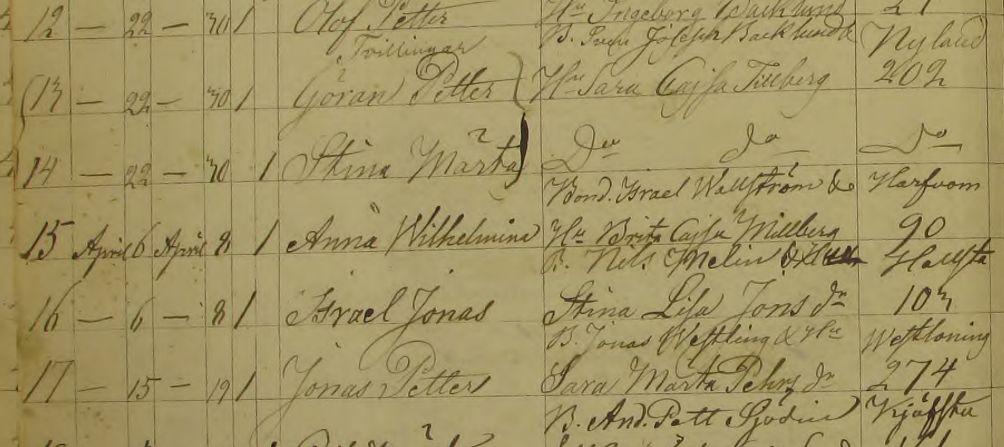 12 — 22 — 30 1 Olof Petter Hu Ingeborg Backlund 21
Tvillingar B. Sven Joseph Backlund & Nyland
(13 — 22 — 30 1 Göran Petter Hu Sara Cajsa Tillberg 202
14 — 22 — 30 1 Stina Märta) Do do Do
Bond. Israel Wallström &
15 April 6 April 8 1 Anna Wilhelmina Hu Brita Cajsa Millberg 90
B. Nils Melin & Hällsta
16 — 6 — 8 1 Israel Jonas Stina Lisa Jons dr 103
B. Jonas Westling & Hu Westloning
17 — 15 — 19 1 Jonas Petter Sara Märta Pehrs dr 274
B. And. Pett Sjödin